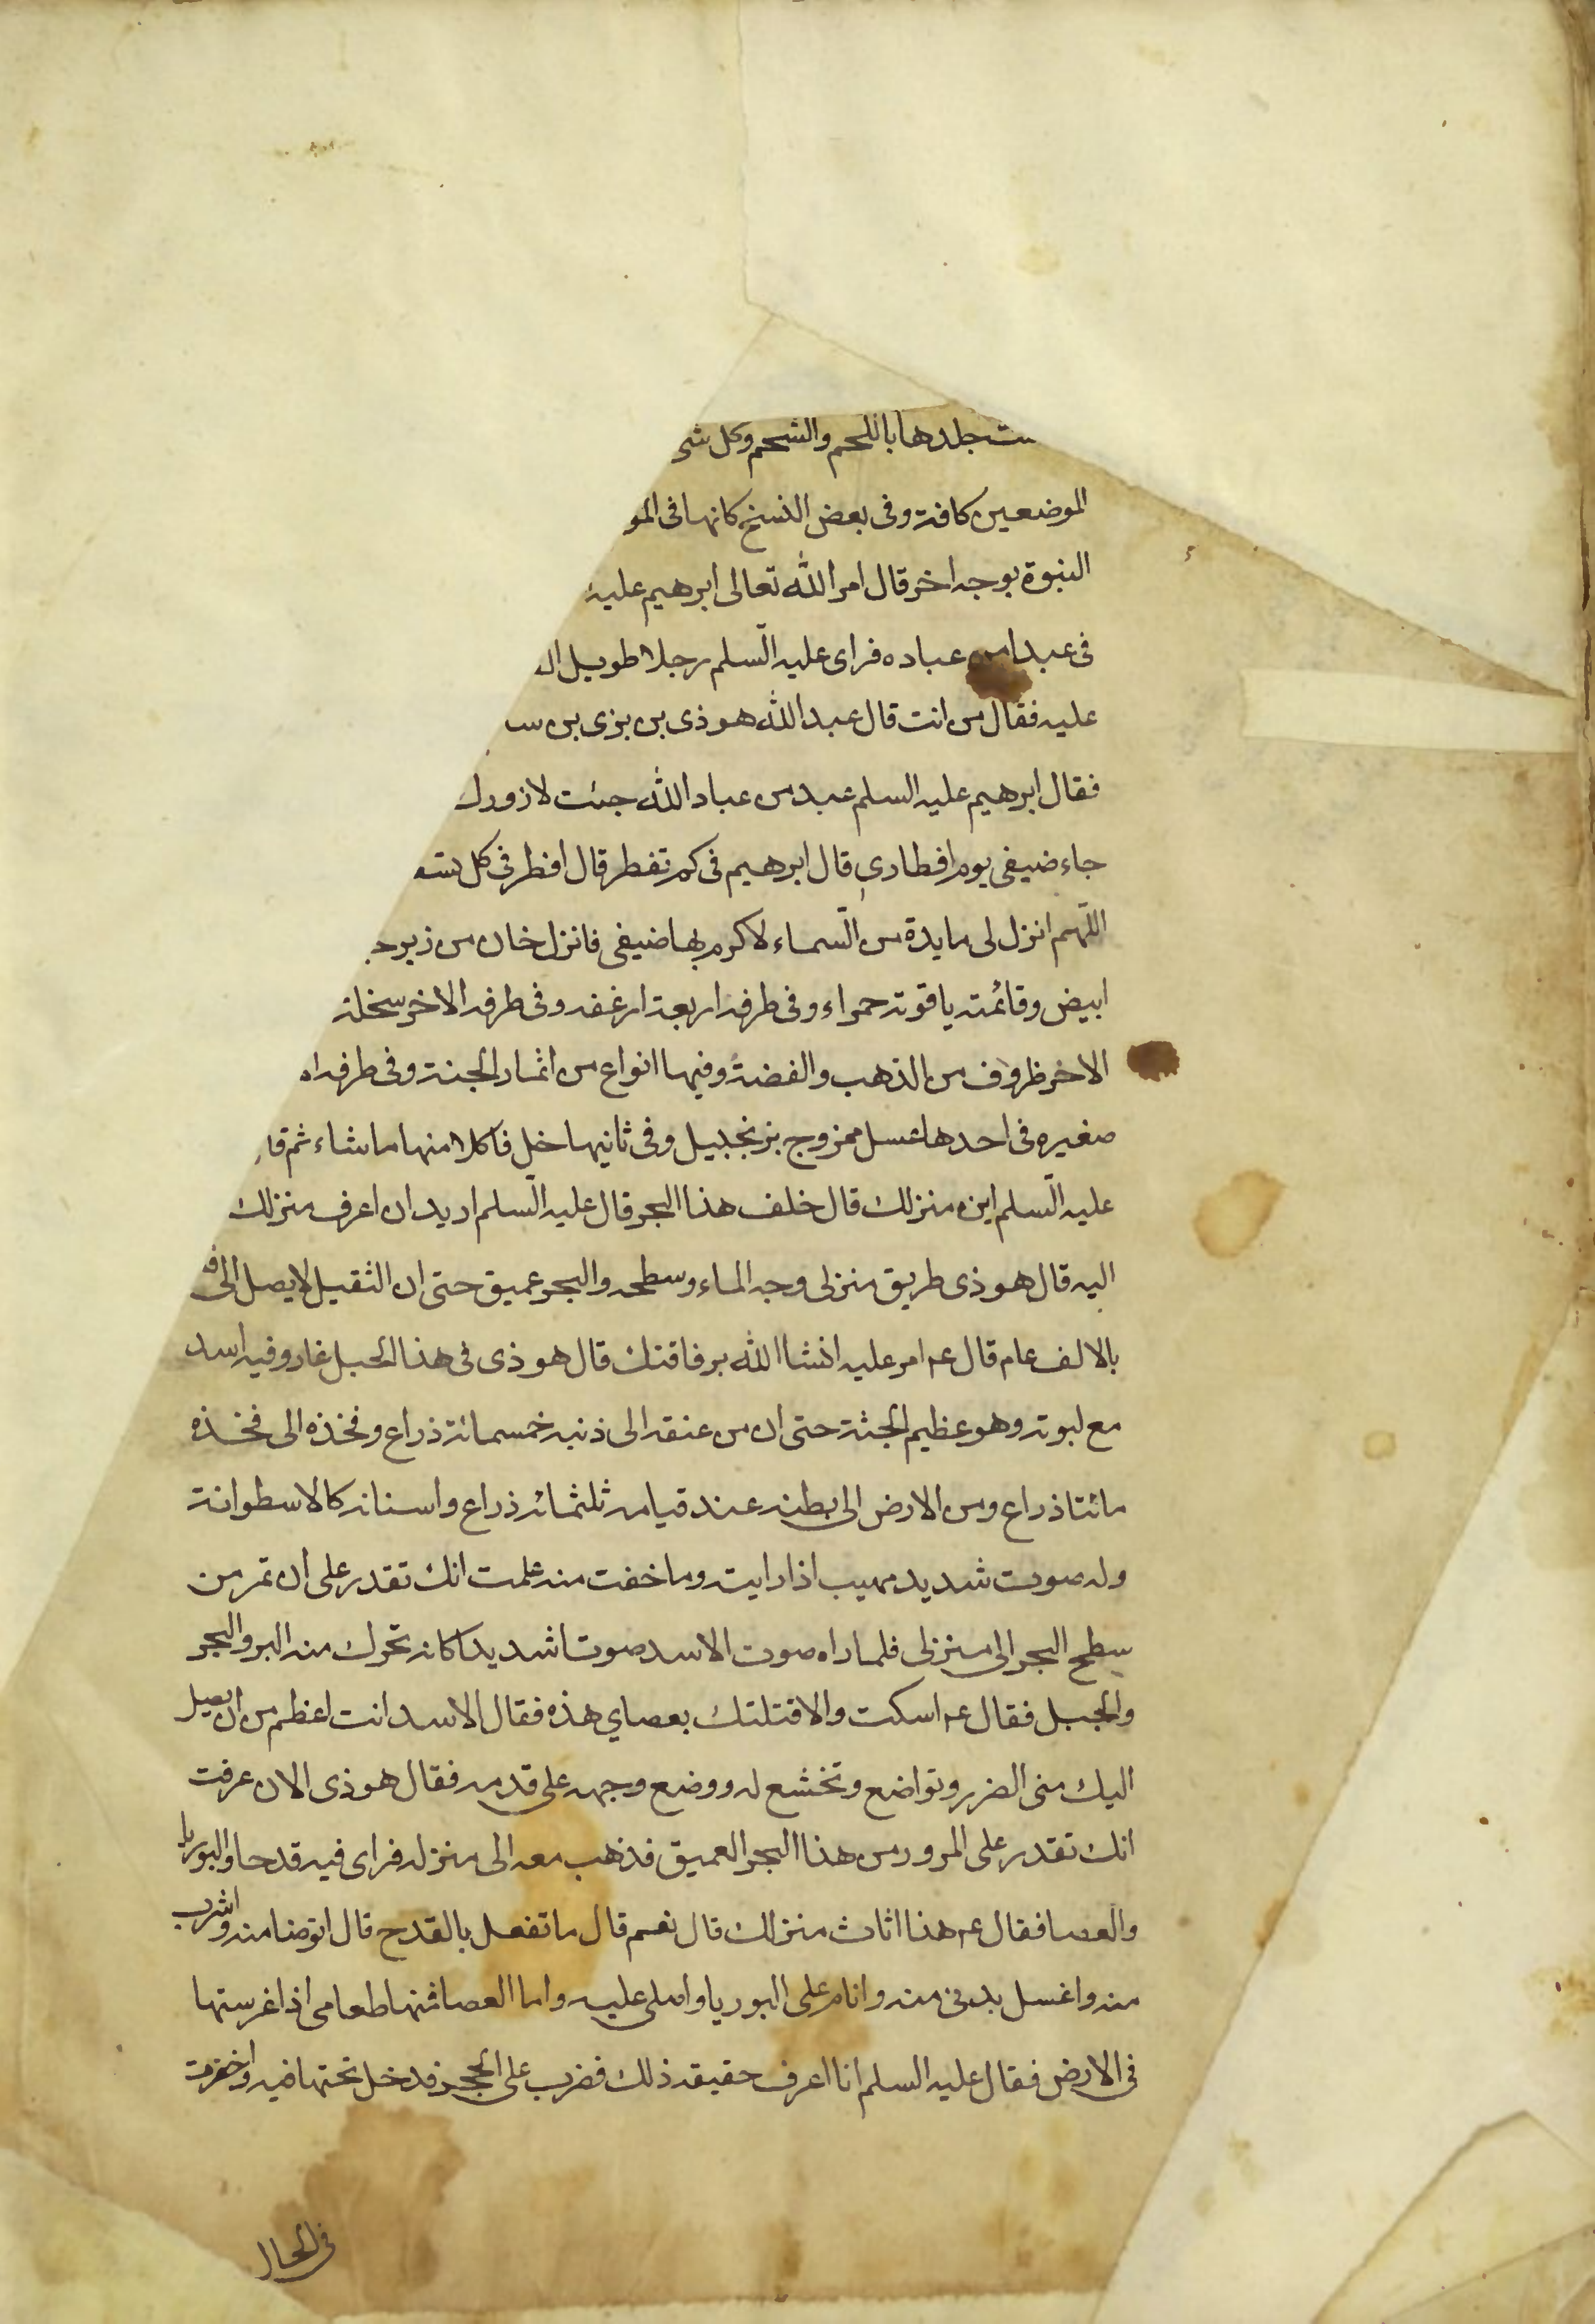 جلدها باللحم والشحم وكل شى
الموضعين كافة وفى بعض النسخ كانها فى المو
النبوة بوجه اخر قال امر الله تعالى ابرهيم عليه
فى عبدا من عباده فراى عليه السّلم رجلا طويل ال
عليه فقال من انت قال عبد الله هوذى بن بزى بن
فقال ابرهيم عليه السلم عبد من عباد الله جئت لازورك
جاء ضيفى يوم افطارى قال ابرهيم فى كم تفطر قال افطر فى كل
اللّهم انزل لى مايدة من السّماء لاكرم بها ضيفى فانزل خان من زبرجد
ابيض وقائمته ياقوتة حمراء وفى طرفه اربعة ارغفه وفى طرفه الاخر سخلة
الاخر ظروف من الذهب والفضة وفيها انواع من اثمار الجنة وفى طرفه
صغيره فى احدها عسل ممزوج بزنجبيل وفى ثانيها خل فاكلا منها ماشاء ثم قا
عليه السّلم اين منزلك قال خلف هذا البحر قال عليه السّلم اريد ان اعرف منزلك
اليه قال هوذى طريق منزلى وجه الماء وسطحه والبحر عميق حتى ان الثقيل لايصل الى
بالالف عام قال عم امر عليه انشاالله برفاقتك قال هوذى فى هذا الجبل غار وفيه اسد
مع لبوته وهو عظيم الجثة حتى ان من عنقه الى ذنبه خمسمائة ذراع وفخذه الى فخذه
مائتا ذراع ومن الارض الى بطنه عند قيامه ثلثمائه ذراع واسنانه كالاسطوانة
وله صوت شديد مهيب اذا رايته وما خفت منه علمت انك تقدر على ان تمر من
سطح البحر الى منزلى فلما راه صوت الاسد صوتا شديدا كانه تحرك منه البر والبحر
والجبل فقال عم اسكت والا قتلتك بعصاي هذه فقال الاسد انت اعظم من ان يصل
اليك منى الضرر وتواضع وتخشع له ووضع وجهه على قدمه فقال هوذى الان عرفت
انك تقدر على المرور من هذا البحر العميق فذهب معه الى منزله فراى فيه قدحا والبوريا
والعصا فقال عم هذا اثاث منزلك قال نعم قال ما تفعل بالقدح قال اتوضا منه واشرب
منه واغسل بدنى منه وانام على البوريا واصلى عليه واما العصا فمنها طعامى اذا غرستها
فى الارض فقال عليه السلم انا اعرف حقيقه ذلك فضرب على الحجر فدخل تحتها فيه واخضرت
فى الحال